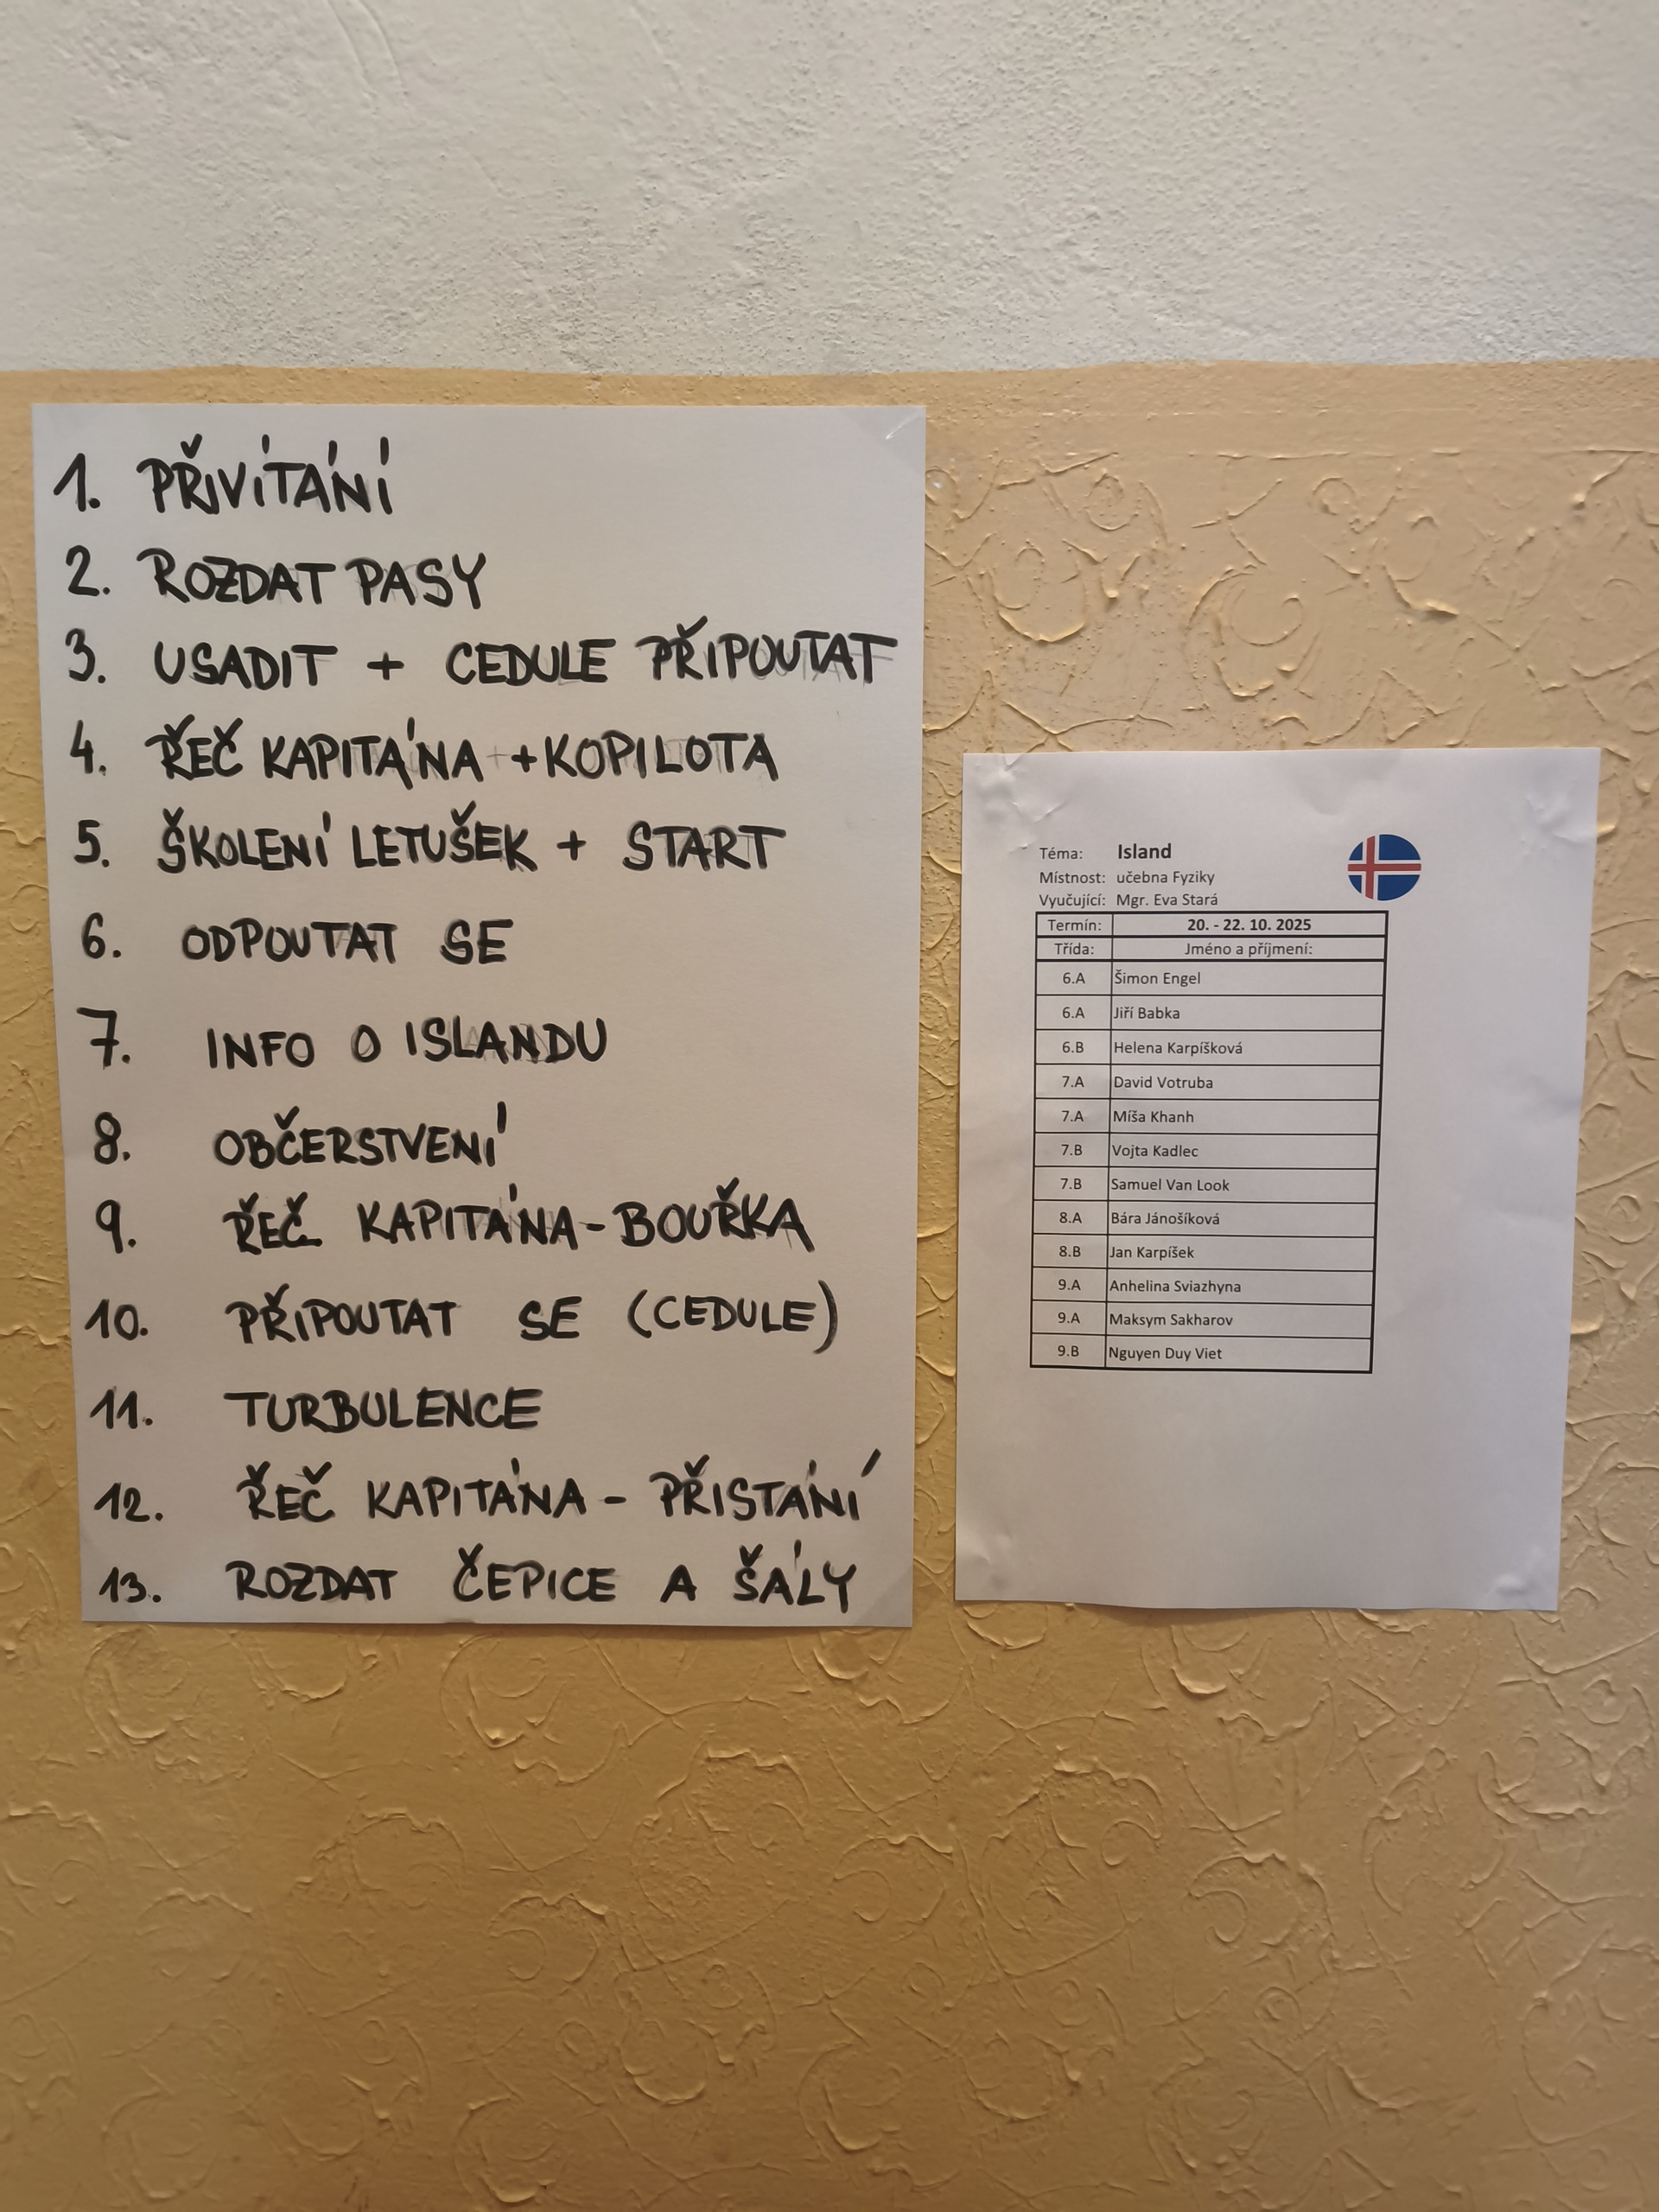 1. PŘIVÍTÁNÍ
2. ROZDAT PASY
3. USADIT + CEDULE PŘIPOUTAT
4. ŘEČ KAPITÁNA + KOPILOTA
5. ŠKOLENÍ LETUŠEK + START
6. ODPOUTAT SE
7. INFO O ISLANDU
8. OBČERSTVENÍ
9. ŘEČ KAPITÁNA - BOUŘKA
10. PŘIPOUTAT SE (CEDULE)
11. TURBULENCE
12. ŘEČ KAPITÁNA - PŘISTÁNÍ
13. ROZDAT ČEPICE A ŠÁLY
Téma: Island
Místnost: učebna Fyziky
Vyučující: Mgr. Eva Stará
Termín: 20. - 22. 10. 2025
Třída: Jméno a příjmení:
6.A Šimon Engel
6.A Jiří Babka
6.B Helena Karpíšková
7.A David Votruba
7.A Míša Khanh
7.B Vojta Kadlec
7.B Samuel Van Look
8.A Bára Jánošíková
8.B Jan Karpíšek
9.A Anhelina Sviazhyna
9.A Maksym Sakharov
9.B Nguyen Duy Viet